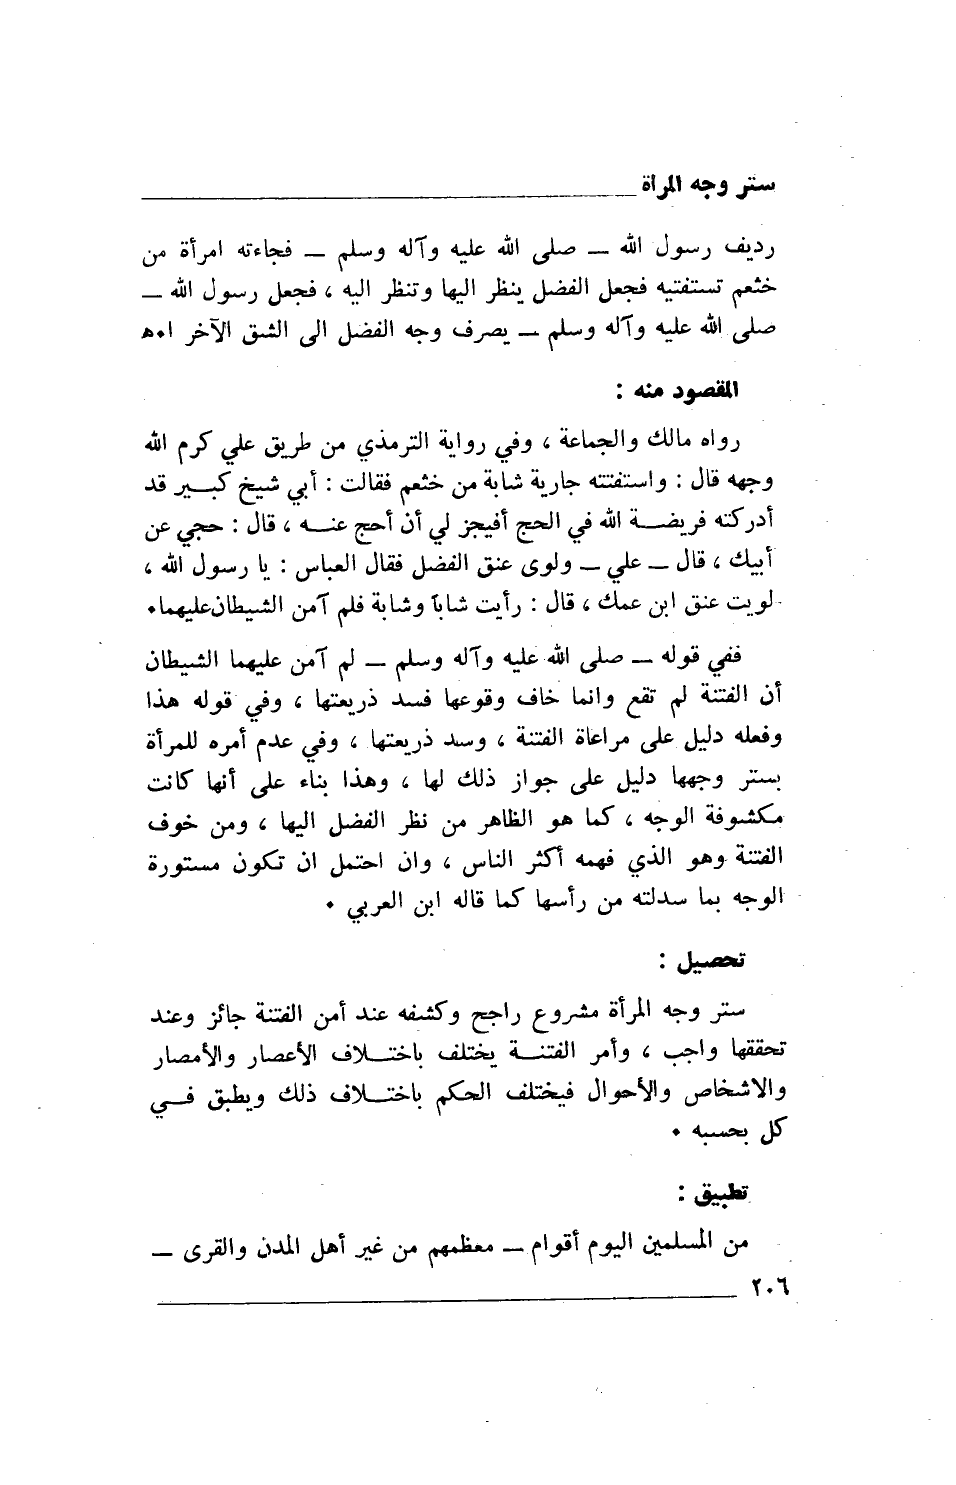 ستر وجه المرأة
رديف رسول الله ــ صلى الله عليه وآله وسلم ــ فجاءته امرأة من
خثعم تستفتيه فجعل الفضل ينظر اليها وتنظر اليه ، فجعل رسول الله ــ
صلى الله عليه وآله وسلم ــ يصرف وجه الفضل الى الشق الآخر ا٠هـ
المقصود منه :
رواه مالك والجماعة ، وفي رواية الترمذي من طريق علي كرم الله
وجهه قال : واستفتته جارية شابة من خثعم فقالت : أبي شيخ كبير قد
أدركته فريضة الله في الحج أفيجز لي أن أحج عنه ، قال : حجي عن
أبيك ، قال ــ علي ــ ولوى عنق الفضل فقال العباس : يا رسول الله ،
لويت عنق ابن عمك ، قال : رأيت شاباً وشابة فلم آمن الشيطان عليهما٠
ففي قوله ــ صلى الله عليه وآله وسلم ــ لم آمن عليهما الشيطان
أن الفتنة لم تقع وانما خاف وقوعها فسد ذريعتها ، وفي قوله هذا
وفعله دليل على مراعاة الفتنة ، وسد ذريعتها ، وفي عدم أمره للمرأة
بستر وجهها دليل على جواز ذلك لها ، وهذا بناء على أنها كانت
مكشوفة الوجه ، كما هو الظاهر من نظر الفضل اليها ، ومن خوف
الفتنة وهو الذي فهمه أكثر الناس ، وان احتمل ان تكون مستورة
الوجه بما سدلته من رأسها كما قاله ابن العربي ٠
تحصيل :
ستر وجه المرأة مشروع راجح وكشفه عند أمن الفتنة جائز وعند
تحققها واجب ، وأمر الفتنة يختلف باختلاف الأعصار والأمصار
والاشخاص والأحوال فيختلف الحكم باختلاف ذلك ويطبق في
كل بحسبه ٠
تطبيق :
من المسلمين اليوم أقوام ــ معظمهم من غير أهل المدن والقرى ــ
٢٠٦